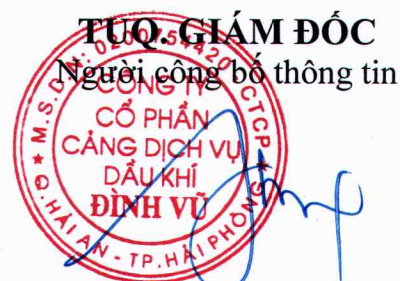 TUQ. GIÁM ĐỐC
Người công bố thông tin
CÔNG TY
CỔ PHẦN
CẢNG DỊCH VỤ
DẦU KHÍ
ĐÌNH VŨ
Q. HẢI AN - TP. HẢI PHÒNG